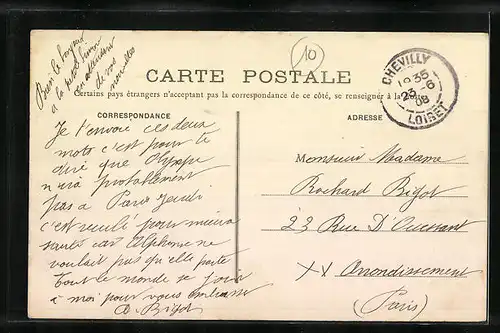 Bien le bonjour
a la petite
en attendant
de vos
nouvelles
10
CHEVILLY
LOIRET
23 -6
08
CARTE POSTALE
Certains pays étrangers n'acceptant pas la correspondance de ce côté, se renseigner à la
CORRESPONDANCE
ADRESSE
Je t'envoie ces deux
mots c'est pour te
dire que
n'ira probablement
pas a Paris jeudi
c'est reculé pour mieux
sauter car Alphonse ne
voulait pas qu'elle parte
Tout le monde se joint
a moi pour vous embrasser
A. Bigot
Monsieur Madame
Rochard Bigot
23 Rue D'Ouessant
XX Arrondissement
(Paris)